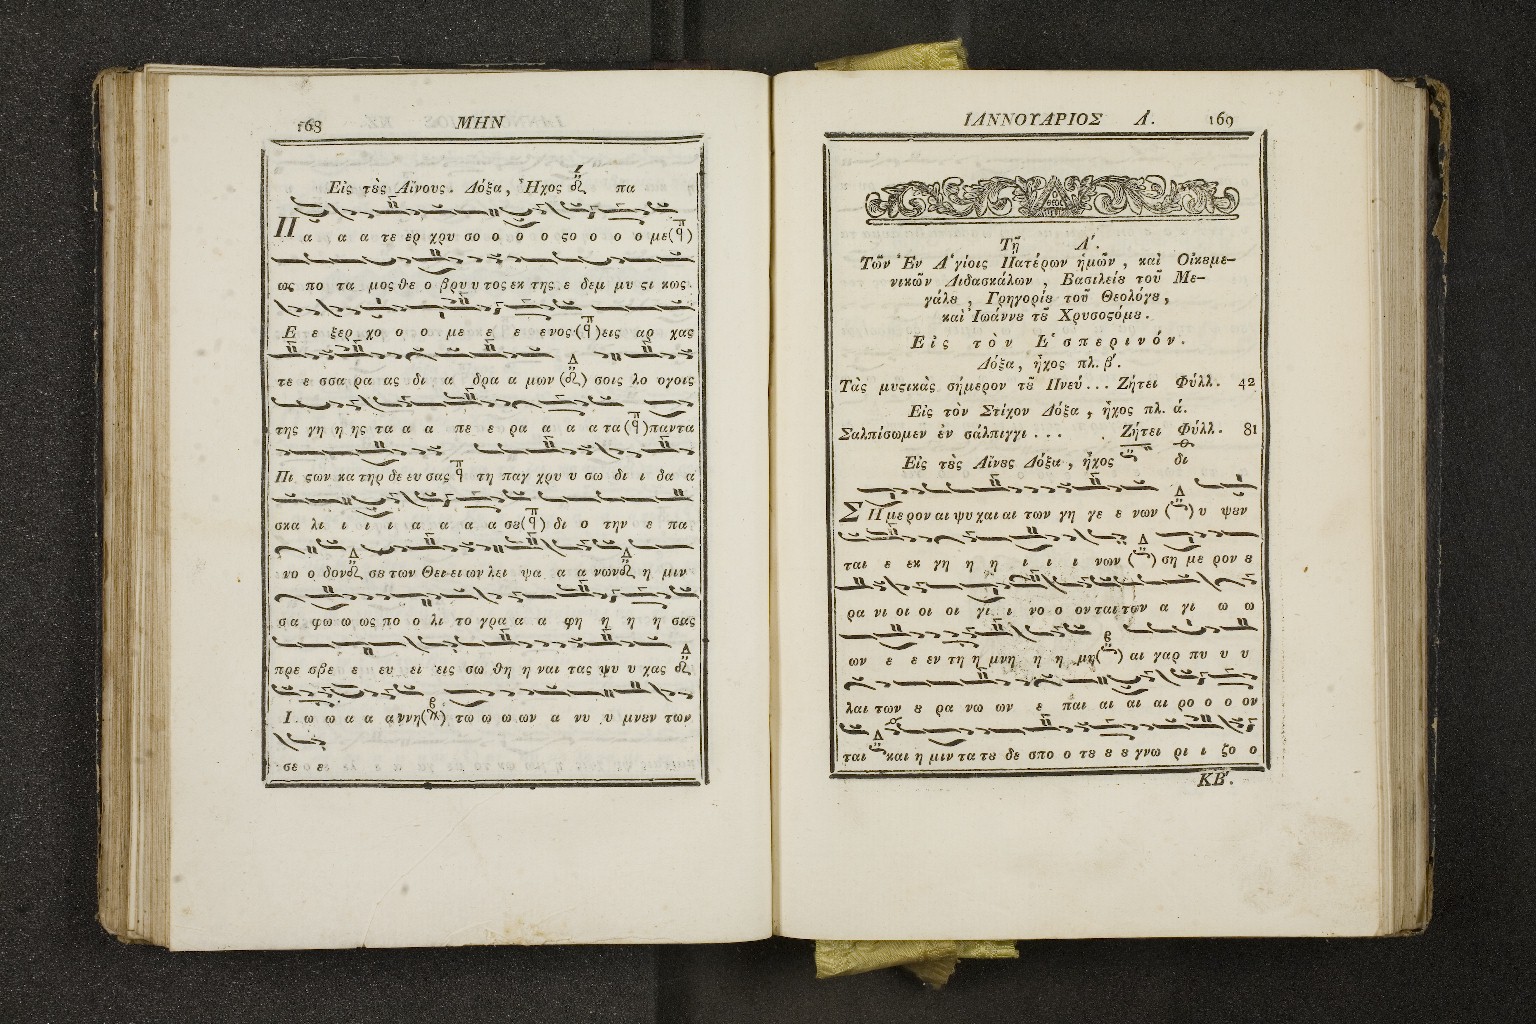 168 ΜΗΝ
Εἰς τȣ̀ς Αἴνους. Δόξα, Ἦχος πα
Πα α α τε ερ χρυ σο ο ο ο ϛο ο ο ο με
ως πο τα μος θε ο βρυ υ τος εκ της ε δεμ μυ ϛι κως
Ε ε ξερ χο ο ο με ε ε ενος εις αρ χας
τε ε σσα ρα ας δι α δρα α μων σοις λο ογοις
της γη η ης τα α α πε ε ρα α α α τα παντα
Πι ϛων κα τηρ δε ευ σας τη παγ χρυ υ σω δι ι δα α
σκα λι ι ι ι α α α α σȣ δι ο την ε πα
νο ο δον σε των Θει ει ων λει ψα α α νων η μιν
σα φω ω ως πο ο λι το γρα α α φη η η η σας
πρε σβε ε ευ ει εις σω θη η ναι τας ψυ υ χας
Ι ω ω α α αννη τω ω ω ων α νυ υ μνȣν των
σε ε
ΙΑΝΝΟΥΑΡΙΟΣ Λ. 169
Τῇ Λ΄.
Τῶν Ἐν Ἁγίοις Πατέρων ἡμῶν, καὶ Οἰκȣμε–
νικῶν Διδασκάλων, Βασιλείȣ τοῦ Με–
γάλȣ, Γρηγορίȣ τοῦ Θεολόγȣ,
καὶ Ἰωάννȣ τȣ͂ Χρυσοϛόμȣ.
Εἰς τὸν Ἑσπερινόν.
Δόξα, ἦχος πλ. β΄.
Τὰς μυϛικὰς σήμερον τȣ͂ Πνεύ... Ζήτει Φύλλ. 42
Εἰς τὸν Στίχον Δόξα, ἦχος πλ. ά.
Σαλπίσωμεν ἐν σάλπιγγι ... Ζήτει Φύλλ. 81
Εἰς τȣ̀ς Αἴνȣς Δόξα, ἦχος δι
ΣΗ με ρον αι ψυ χαι αι των γη γε ε νων υ ψȣν
ται ε εκ γη η η ι ι ι νων ση με ρον ȣ
ρα νι οι οι οι γι ι νο ο ον ται των α γι ω ω
ων ε ε εν τη η μνη η η μη αι γαρ πυ υ υ
λαι των ȣ ρα νω ων ε παι αι αι αι ρο ο ο ον
ται και η μιν τα τȣ δε σπο ο τȣ ȣ ȣ γνω ρι ι ζο ο
ΚΒ΄.